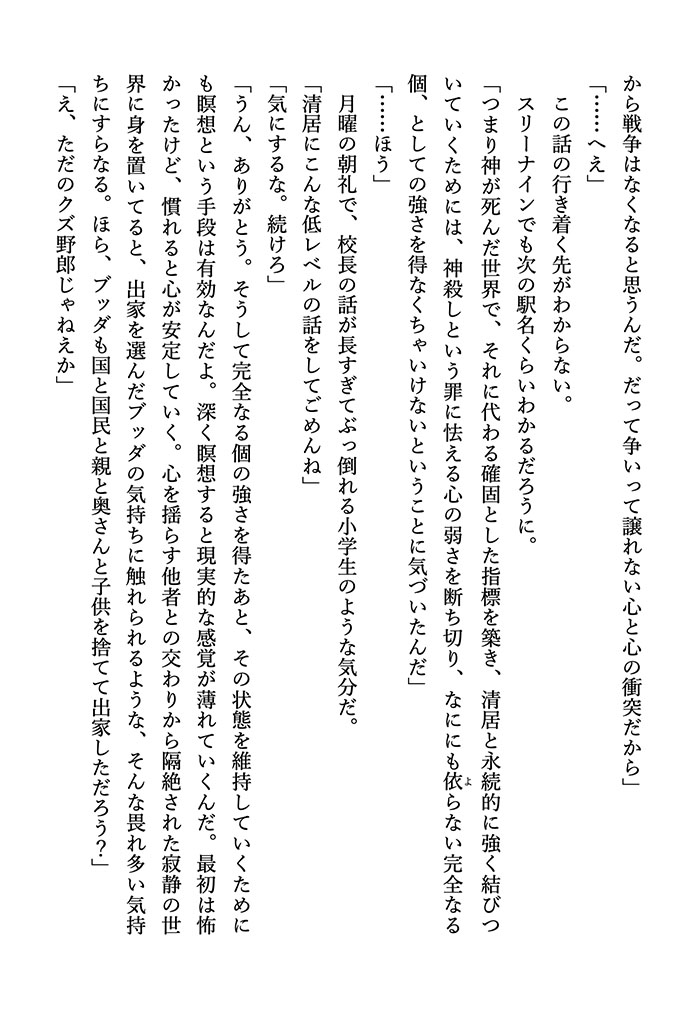 から戦争はなくなると思うんだ。だって争いって譲れない心と心の衝突だから」
「……へえ」
この話の行き着く先がわからない。
スリーナインでも次の駅名くらいわかるだろうに。
「つまり神が死んだ世界で、それに代わる確固とした指標を築き、清居と永続的に強く結びつ
いていくためには、神殺しという罪に怯える心の弱さを断ち切り、なににも依らない完全なる
よ
個、としての強さを得なくちゃいけないということに気づいたんだ」
「……ほう」
月曜の朝礼で、校長の話が長すぎてぶっ倒れる小学生のような気分だ。
「清居にこんな低レベルの話をしてごめんね」
「気にするな。続けろ」
「うん、ありがとう。そうして完全なる個の強さを得たあと、その状態を維持していくために
も瞑想という手段は有効なんだよ。深く瞑想すると現実的な感覚が薄れていくんだ。最初は怖
かったけど、慣れると心が安定していく。心を揺らす他者との交わりから隔絶された寂静の世
界に身を置いてると、出家を選んだブッダの気持ちに触れられるような、そんな畏れ多い気持
ちにすらなる。ほら、ブッダも国と国民と親と奥さんと子供を捨てて出家しただろう？」
「え、ただのクズ野郎じゃねえか」